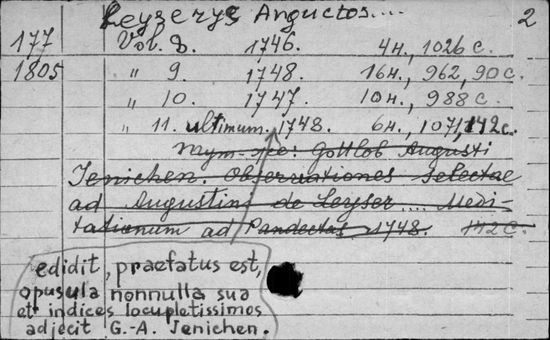 Leyserus Augustus.... 2
177 Vol. 8. 1746. 4н., 1026 с.
1805 " 9. 1748. 16н., 962, 90 с.
" 10. 1747. 10н., 988 с.
" 11. ultimum. 1748. 6н., 1071, 142 с.
Тут же: Gottlob Augusti
Jenichen. Observationes selectae
ad Augustini de Leyser.... Medi-
tationum ad Pandectas 1748. 142 с.
edidit, praefatus est,
opusula nonnulla sua
et indices locupletissimos
adjecit G.-A. Jenichen.